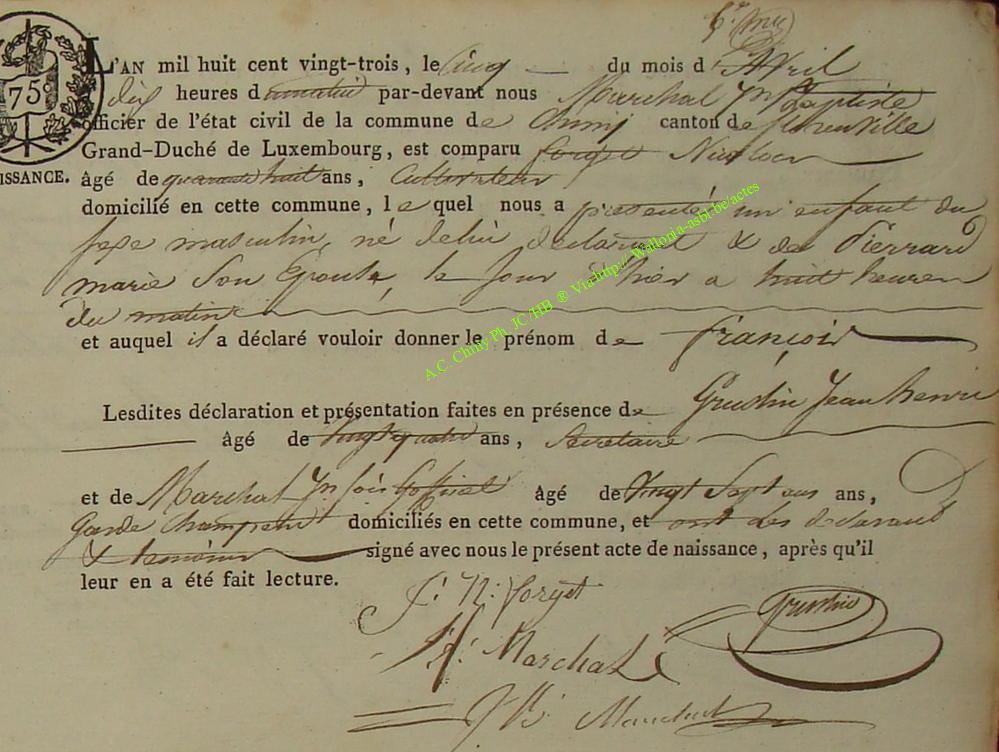 L'AN mil huit cent vingt-trois, le cinq du mois d'Avril
75c
dix heures du matin par-devant nous Marchal Jn Baptiste
officier de l'état civil de la commune de Chiny canton de florenville
Grand-Duché de Luxembourg, est comparu forget Nicolas
ISSANCE. âgé de quarante huit ans, Cultivateur
domicilié en cette commune, le quel nous a présenté un enfant du
sexe masculin, né de lui déclarant & de Pierrard
marie Son Epouse, le jour d'hier a huit heures
du matin
et auquel il a déclaré vouloir donner le prénom de françois
Lesdites déclaration et présentation faites en présence de Grustin Jean henri
âgé de Vingt quatre ans, Secretaire
et de Marchal Jn fois âgé de Vingt Sept ans ans,
Garde Champetre domiciliés en cette commune, et ont les declarant
& temoins signé avec nous le présent acte de naissance, après qu'il
leur en a été fait lecture.
J: N: forget
Grustin
Marchal
JB: Marchal
A.C. Chiny Ph. JC /HB ® Via http://Wallonia-asbl.be/actes